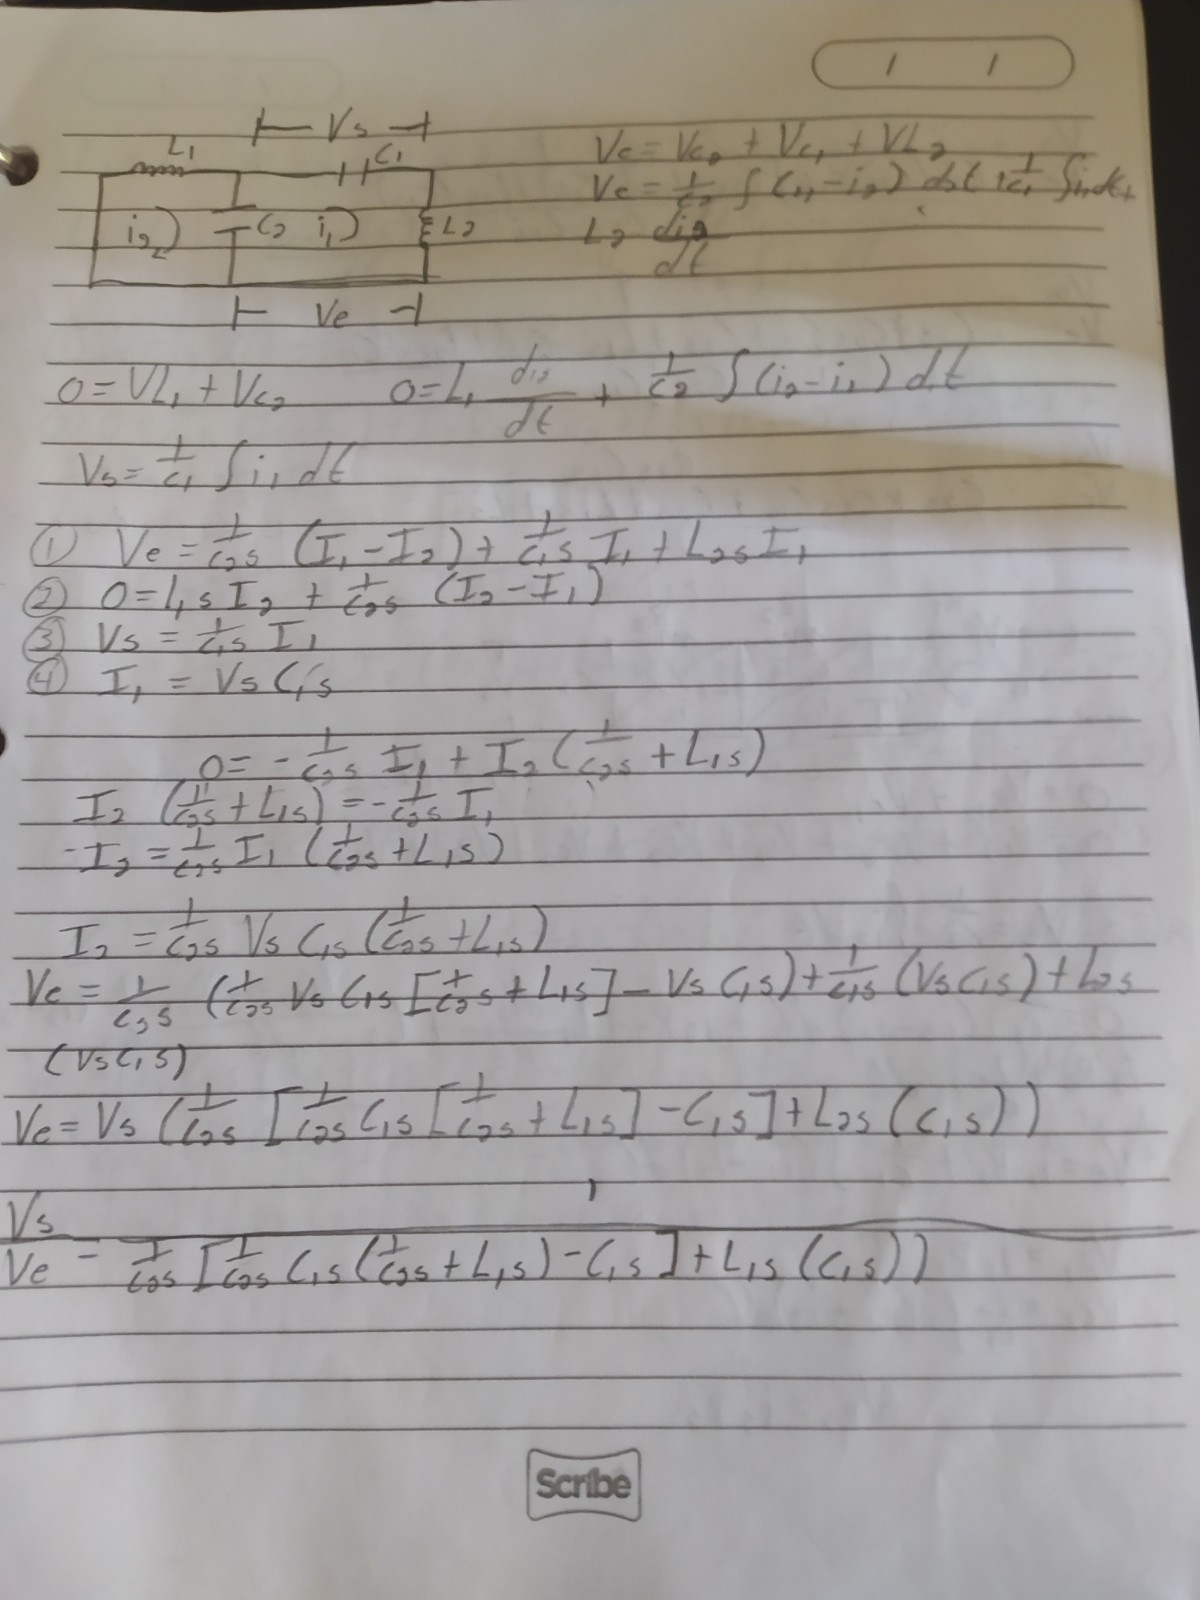 / /
⊢ Vs ⊣
L1 C1
i2) C2 i1) L2
⊢ Ve ⊣
Ve = Vc2 + Vc1 + VL2
Ve = 1/c2 ∫(i1-i2) dt + 1/c1 ∫i1dt+
L2 di2/dt
0=VL1+Vc2 0=L1 di2/dt + 1/c2 ∫(i2-i1) dt
Vs= 1/c1 ∫i1 dt
① Ve = 1/c2s (I1-I2)+ 1/c1s I1+L2s I1
② 0=L1s I2 + 1/c2s (I2-I1)
③ Vs = 1/c1s I1
④ I1 = Vs C1s
0= - 1/c2s I1 + I2 (1/c2s + L1s)
I2 (1/c2s + L1s) = - 1/c2s I1
-I2 = 1/c2s I1 (1/c2s + L1s)
I2 = 1/c2s Vs C1s (1/c2s + L1s)
Ve = 1/c2s (1/c2s Vs C1s [1/c2s + L1s] - Vs C1s) + 1/c1s (Vs C1s) + L2s
(Vs C1s)
Ve = Vs (1/c2s [1/c2s C1s [1/c2s + L1s] - C1s] + L2s (C1s))
Vs/Ve = 1/c2s [1/c2s C1s (1/c2s + L1s) - C1s] + L1s (C1s))
Scribe